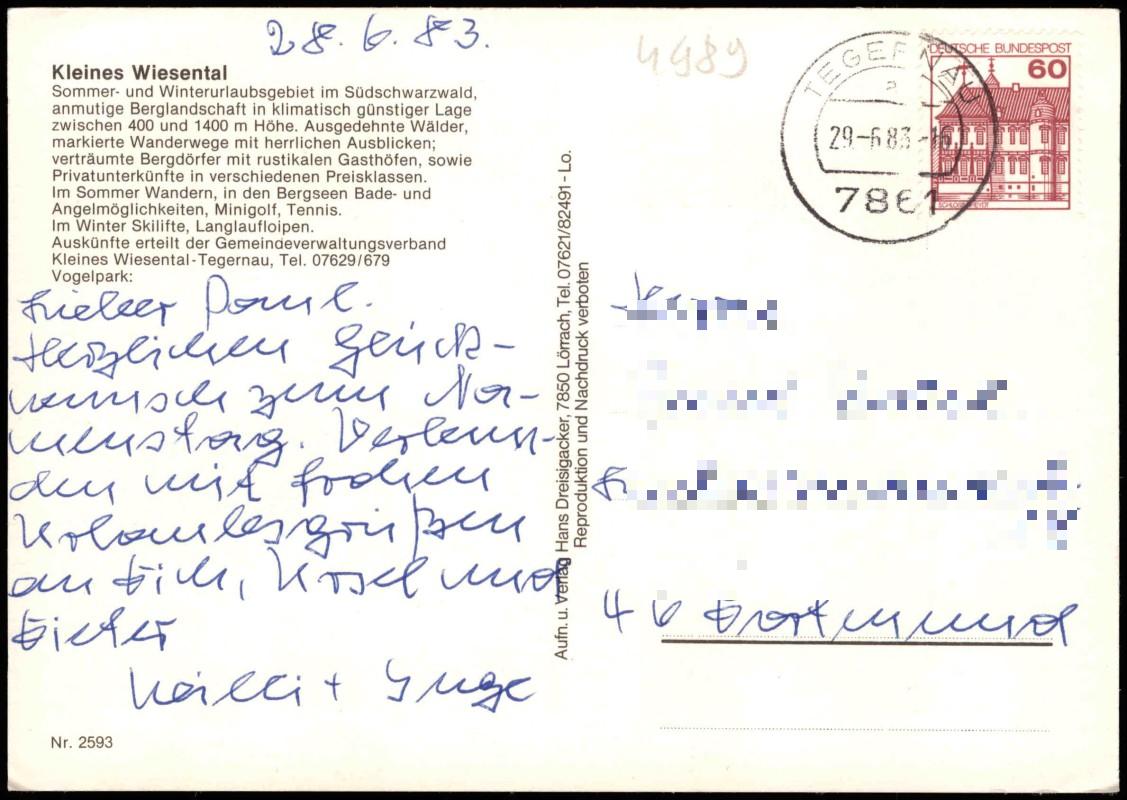 28.6.83.
4989
Kleines Wiesental
Sommer- und Winterurlaubsgebiet im Südschwarzwald,
anmutige Berglandschaft in klimatisch günstiger Lage
zwischen 400 und 1400 m Höhe. Ausgedehnte Wälder,
markierte Wanderwege mit herrlichen Ausblicken;
verträumte Bergdörfer mit rustikalen Gasthöfen, sowie
Privatunterkünfte in verschiedenen Preisklassen.
Im Sommer Wandern, in den Bergseen Bade- und
Angelmöglichkeiten, Minigolf, Tennis.
Im Winter Skilifte, Langlaufloipen.
Auskünfte erteilt der Gemeindeverwaltungsverband
Kleines Wiesental-Tegernau, Tel. 07629/679
Vogelpark:
Lieber Paul.
Herzlichen Glück-
wunsch zum Na-
menstag. Verbun-
den mit frohen
Urlaubsgrüßen
an Dich, Ursel und
Dieter
Willi + Inge
Nr. 2593
Aufn. u. Verlag Hans Dreisigacker, 7850 Lörrach, Tel. 07621/82491 - Lo.
Reproduktion und Nachdruck verboten
TEGERNAU
a
29.-6.83.-16
7861
DEUTSCHE BUNDESPOST
60
46 Dortmund